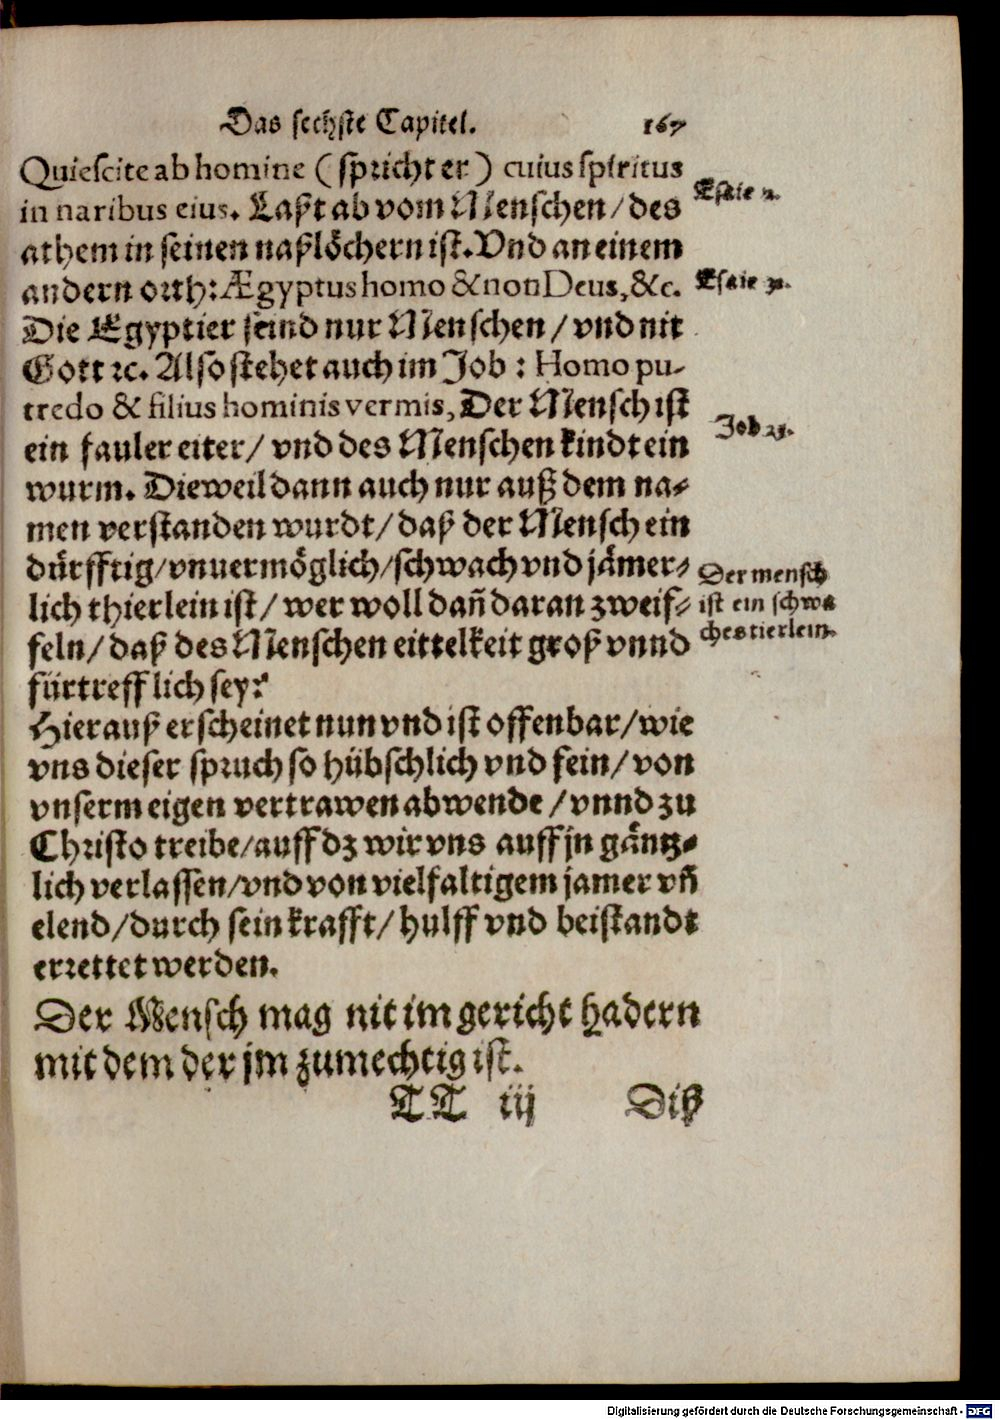 Das sechste Capitel. 167
Quiescite ab homine (spricht er) cuius spiritus
in naribus eius. Laßt ab vom Menschen/des
athem in seinen naßlöchern ist. Vnd an einem
andern orth: Ægyptus homo & non Deus, &c.
Die Egyptier seind nur Menschen/vnd nit
Gott ꝛc. Also stehet auch im Job: Homo pu-
tredo & filius hominis vermis, Der Mensch ist
ein fauler eiter/ vnd des Menschen kindt ein
wurm. Dieweil dann auch nur auß dem na-
men verstanden wurdt/daß der Mensch ein
dürfftig/vnuermöglich/schwach vnd jämer-
lich thierlein ist/ wer woll dañ daran zweif-
feln/daß des Menschen eittelkeit groß vnnd
fürtrefflich sey?
Hierauß erscheinet nun vnd ist offenbar/wie
vns dieser spruch so hübschlich vnd fein/von
vnserm eigen vertrawen abwende/vnnd zu
Christo treibe/auff dz wir vns auff jn gäntz-
lich verlassen/vnd von vielfaltigem jamer vñ
elend/durch sein krafft/hulff vnd beistandt
errettet werden.
Der Mensch mag nit im gericht hadern
mit dem der jm zumechtig ist.
TT iij Diß
Esaie 2.
Esaie 31.
Job 25.
Der mensch
ist ein schwa
ches tierlein.
Digitalisierung gefördert durch die Deutsche Forschungsgemeinschaft - DFG